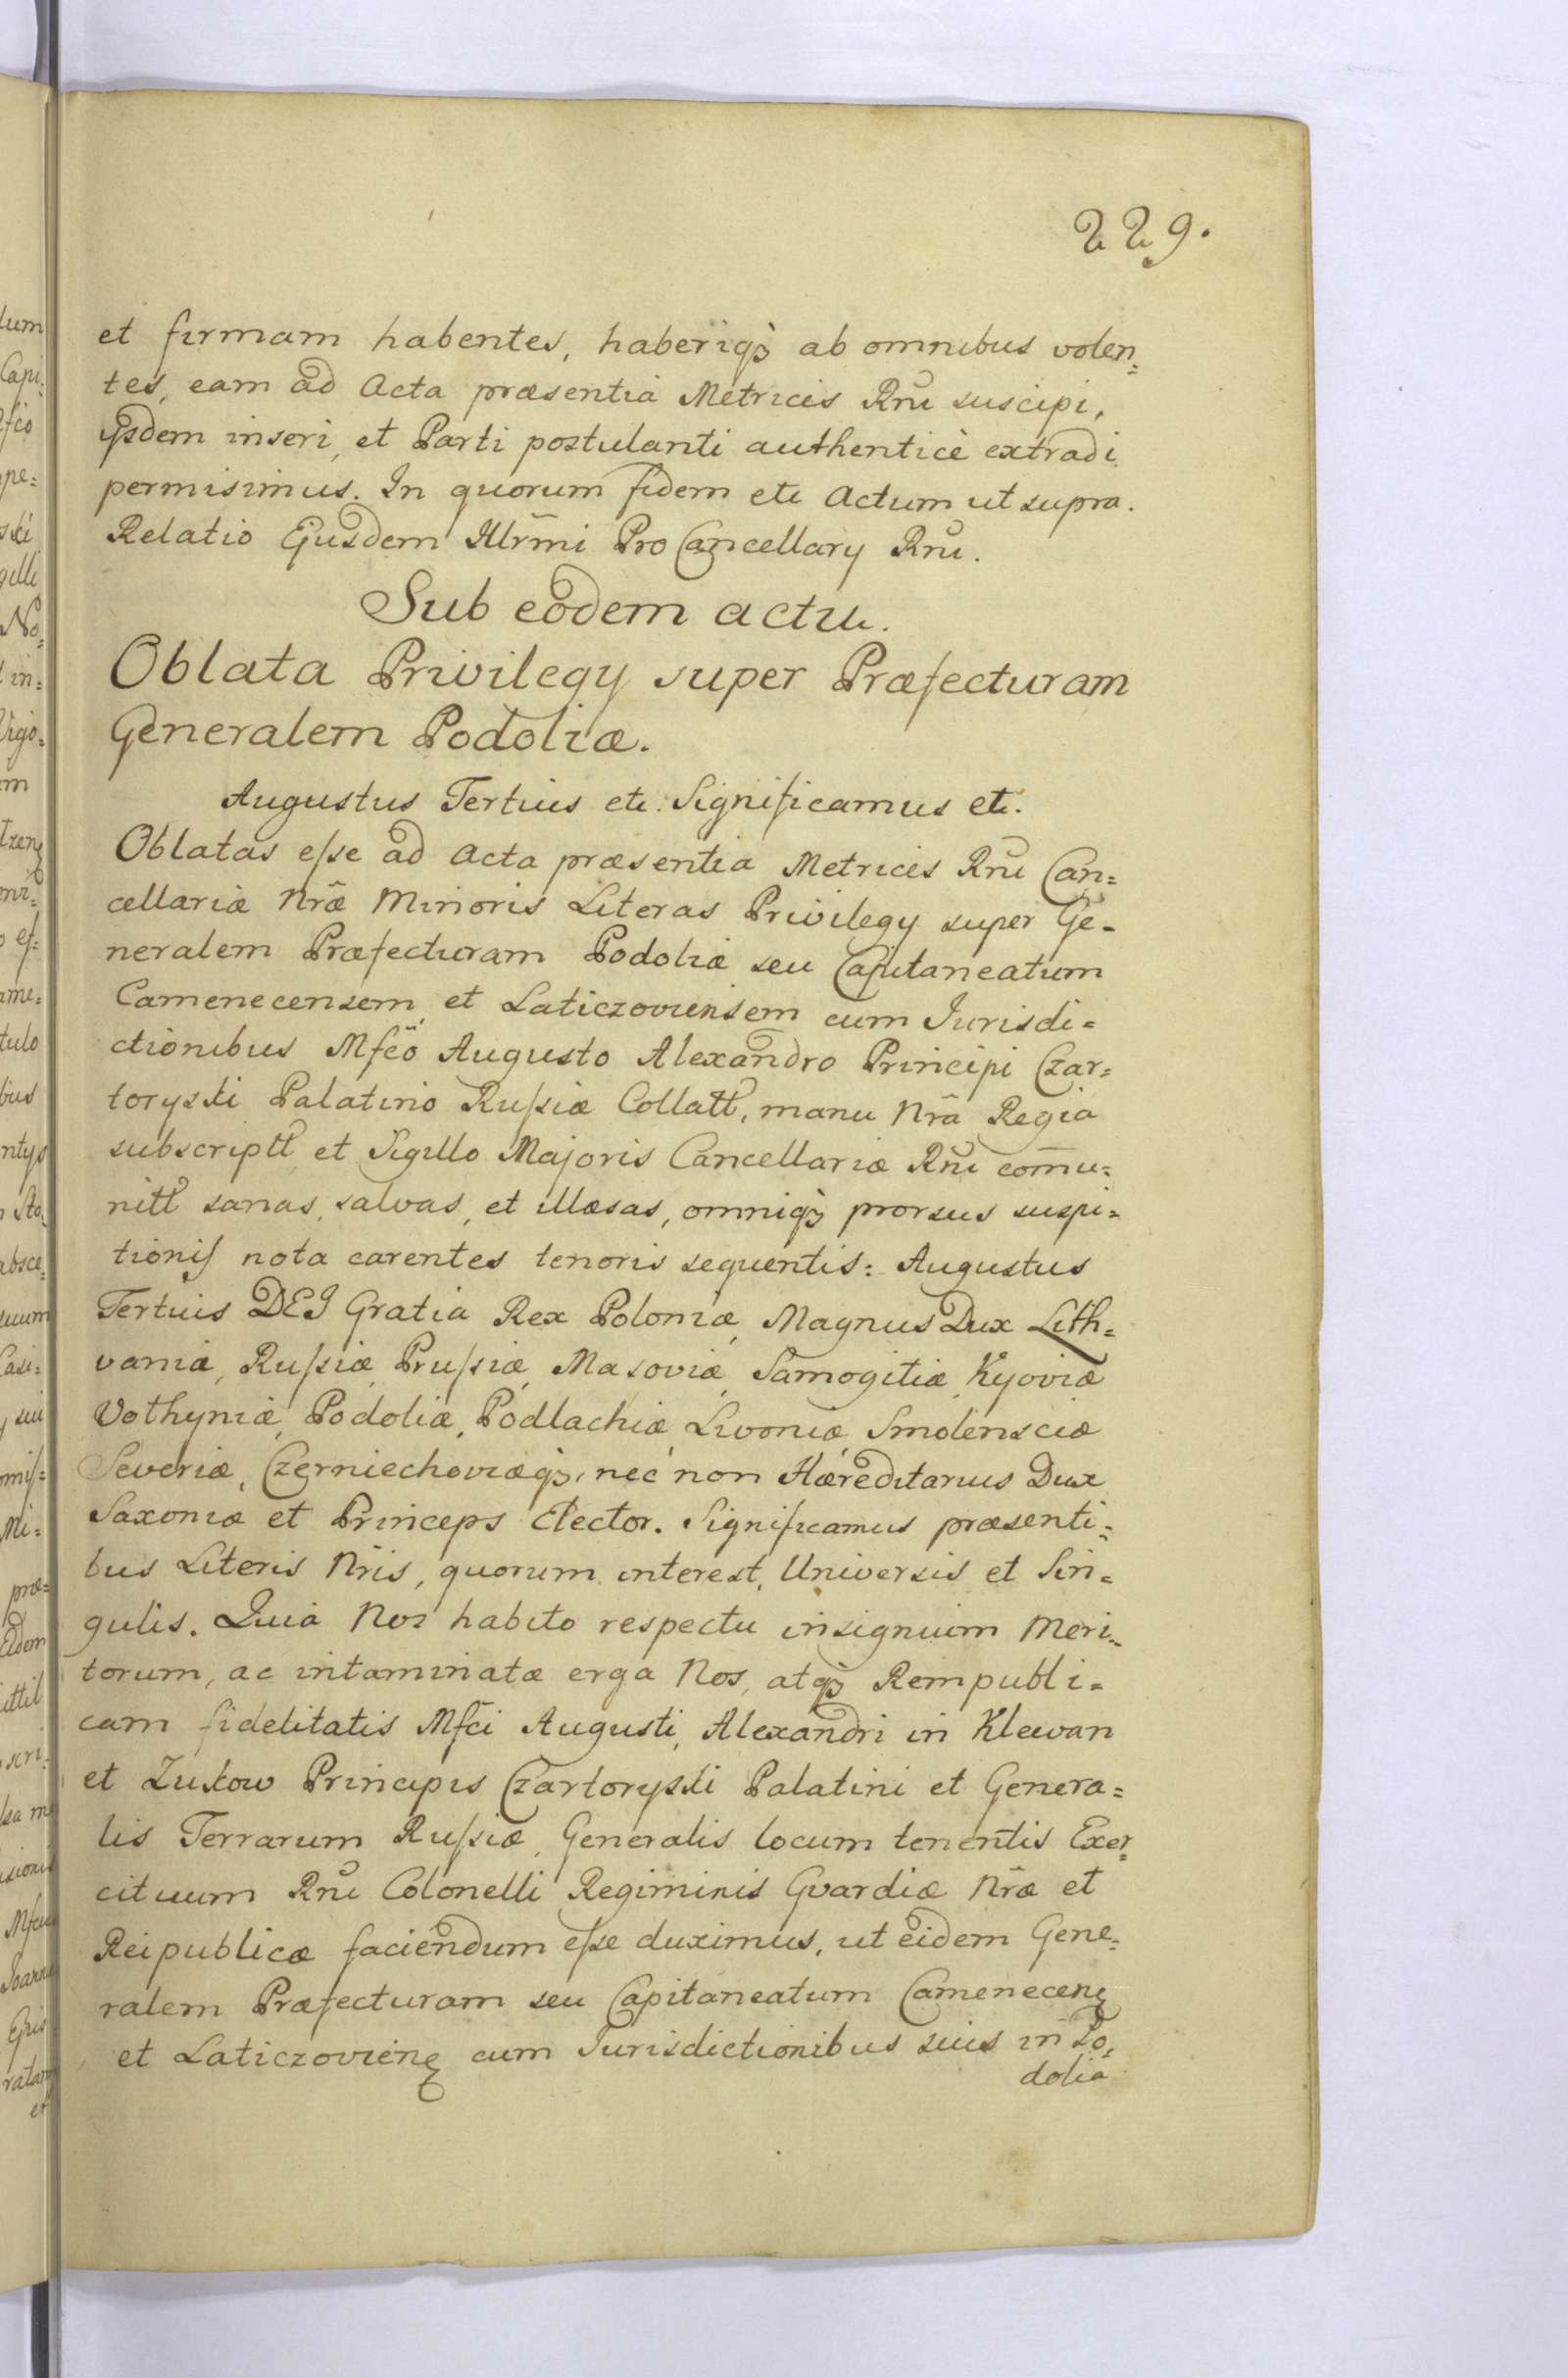 229.
et firmam habentes, haberiqȝ ab omnibus volen=
tes, eam ad Acta præsentia Metrices Rni suscipi,
ijsdem inseri, et Parti postulanti authenticè extradi
permisimus. In quorum fidem etc Actum ut supra.
Relatio Ejusdem Illrmi ProCancellary Rni.
Sub eodem actu.
Oblata Privilegy super Præfecturam
Generalem Podoliæ.
Augustus Tertius etc. Significamus etc.
Oblatas eſse ad Acta præsentia Metrices Rni Can=
cellariæ Nræ Minoris Literas Privilegy super Ge=
neralem Præfecturam Podoliæ seu Capitaneatum
Camenecensem et Laticzoviensem cum Jurisdi=
ctionibus Mfco Augusto Alexandro Principi Czar=
toryski Palatino Ruſsiæ Collatt, manu Nra Regia
subscriptt et Sigillo Majoris Cancellariæ Rni comu=
nitt sanas, salvas, et illæsas, omniqȝ prorsus suspi=
tionis nota carentes tenoris sequentis: Augustus
Tertius DEI Gratia Rex Poloniæ, Magnus Dux Lith=
vaniæ, Ruſsiæ, Pruſsiæ, Masoviæ, Samogitiæ, Kyoviæ
Volhyniæ, Podoliæ, Podlachiæ, Livoniæ, Smolensciæ
Severiæ, Czerniechoviæqȝ, nec non Hæreditarius Dux
Saxoniæ et Princeps Elector. Significamus præsenti=
bus Literis Nris, quorum interest, Universis et Sin=
gulis. Quia Nos habito respectu insignium Meri=
torum, ac intaminatæ erga Nos, atqȝ Rempubli=
cam fidelitatis Mfci Augusti, Alexandri in Klewan
et Zukow Principis Czartoryski Palatini et Genera=
lis Terrarum Ruſsiæ, Generalis locum tenentis Exer=
cituum Rni Colonelli Regiminis Gvardiæ Nræ et
Reipublicæ faciendum eſse duximus, ut eidem Gene=
ralem Præfecturam seu Capitaneatum Camenecen
et Laticzovien cum Jurisdictionibus suis in Po=
dolia